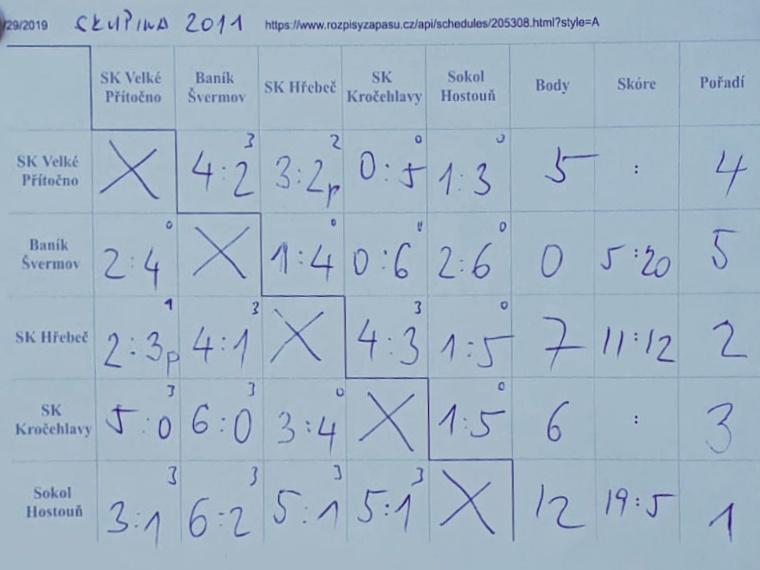 29/2019 SKUPINA 2011 https://www.rozpisyzapasu.cz/api/schedules/205308.html?style=A
SK Velké Přítočno Baník Švermov SK Hřebeč SK Kročehlavy Sokol Hostouň Body Skóre Pořadí
SK Velké Přítočno X 4:2 3 3:2p 2 0:5 0 1:3 0 5 : 4
Baník Švermov 2:4 0 X 1:4 0 0:6 0 2:6 0 0 5:20 5
SK Hřebeč 2:3p 1 4:1 3 X 4:3 3 1:5 0 7 11:12 2
SK Kročehlavy 5:0 3 6:0 3 3:4 0 X 1:5 0 6 : 3
Sokol Hostouň 3:1 3 6:2 3 5:1 3 5:1 3 X 12 19:5 1